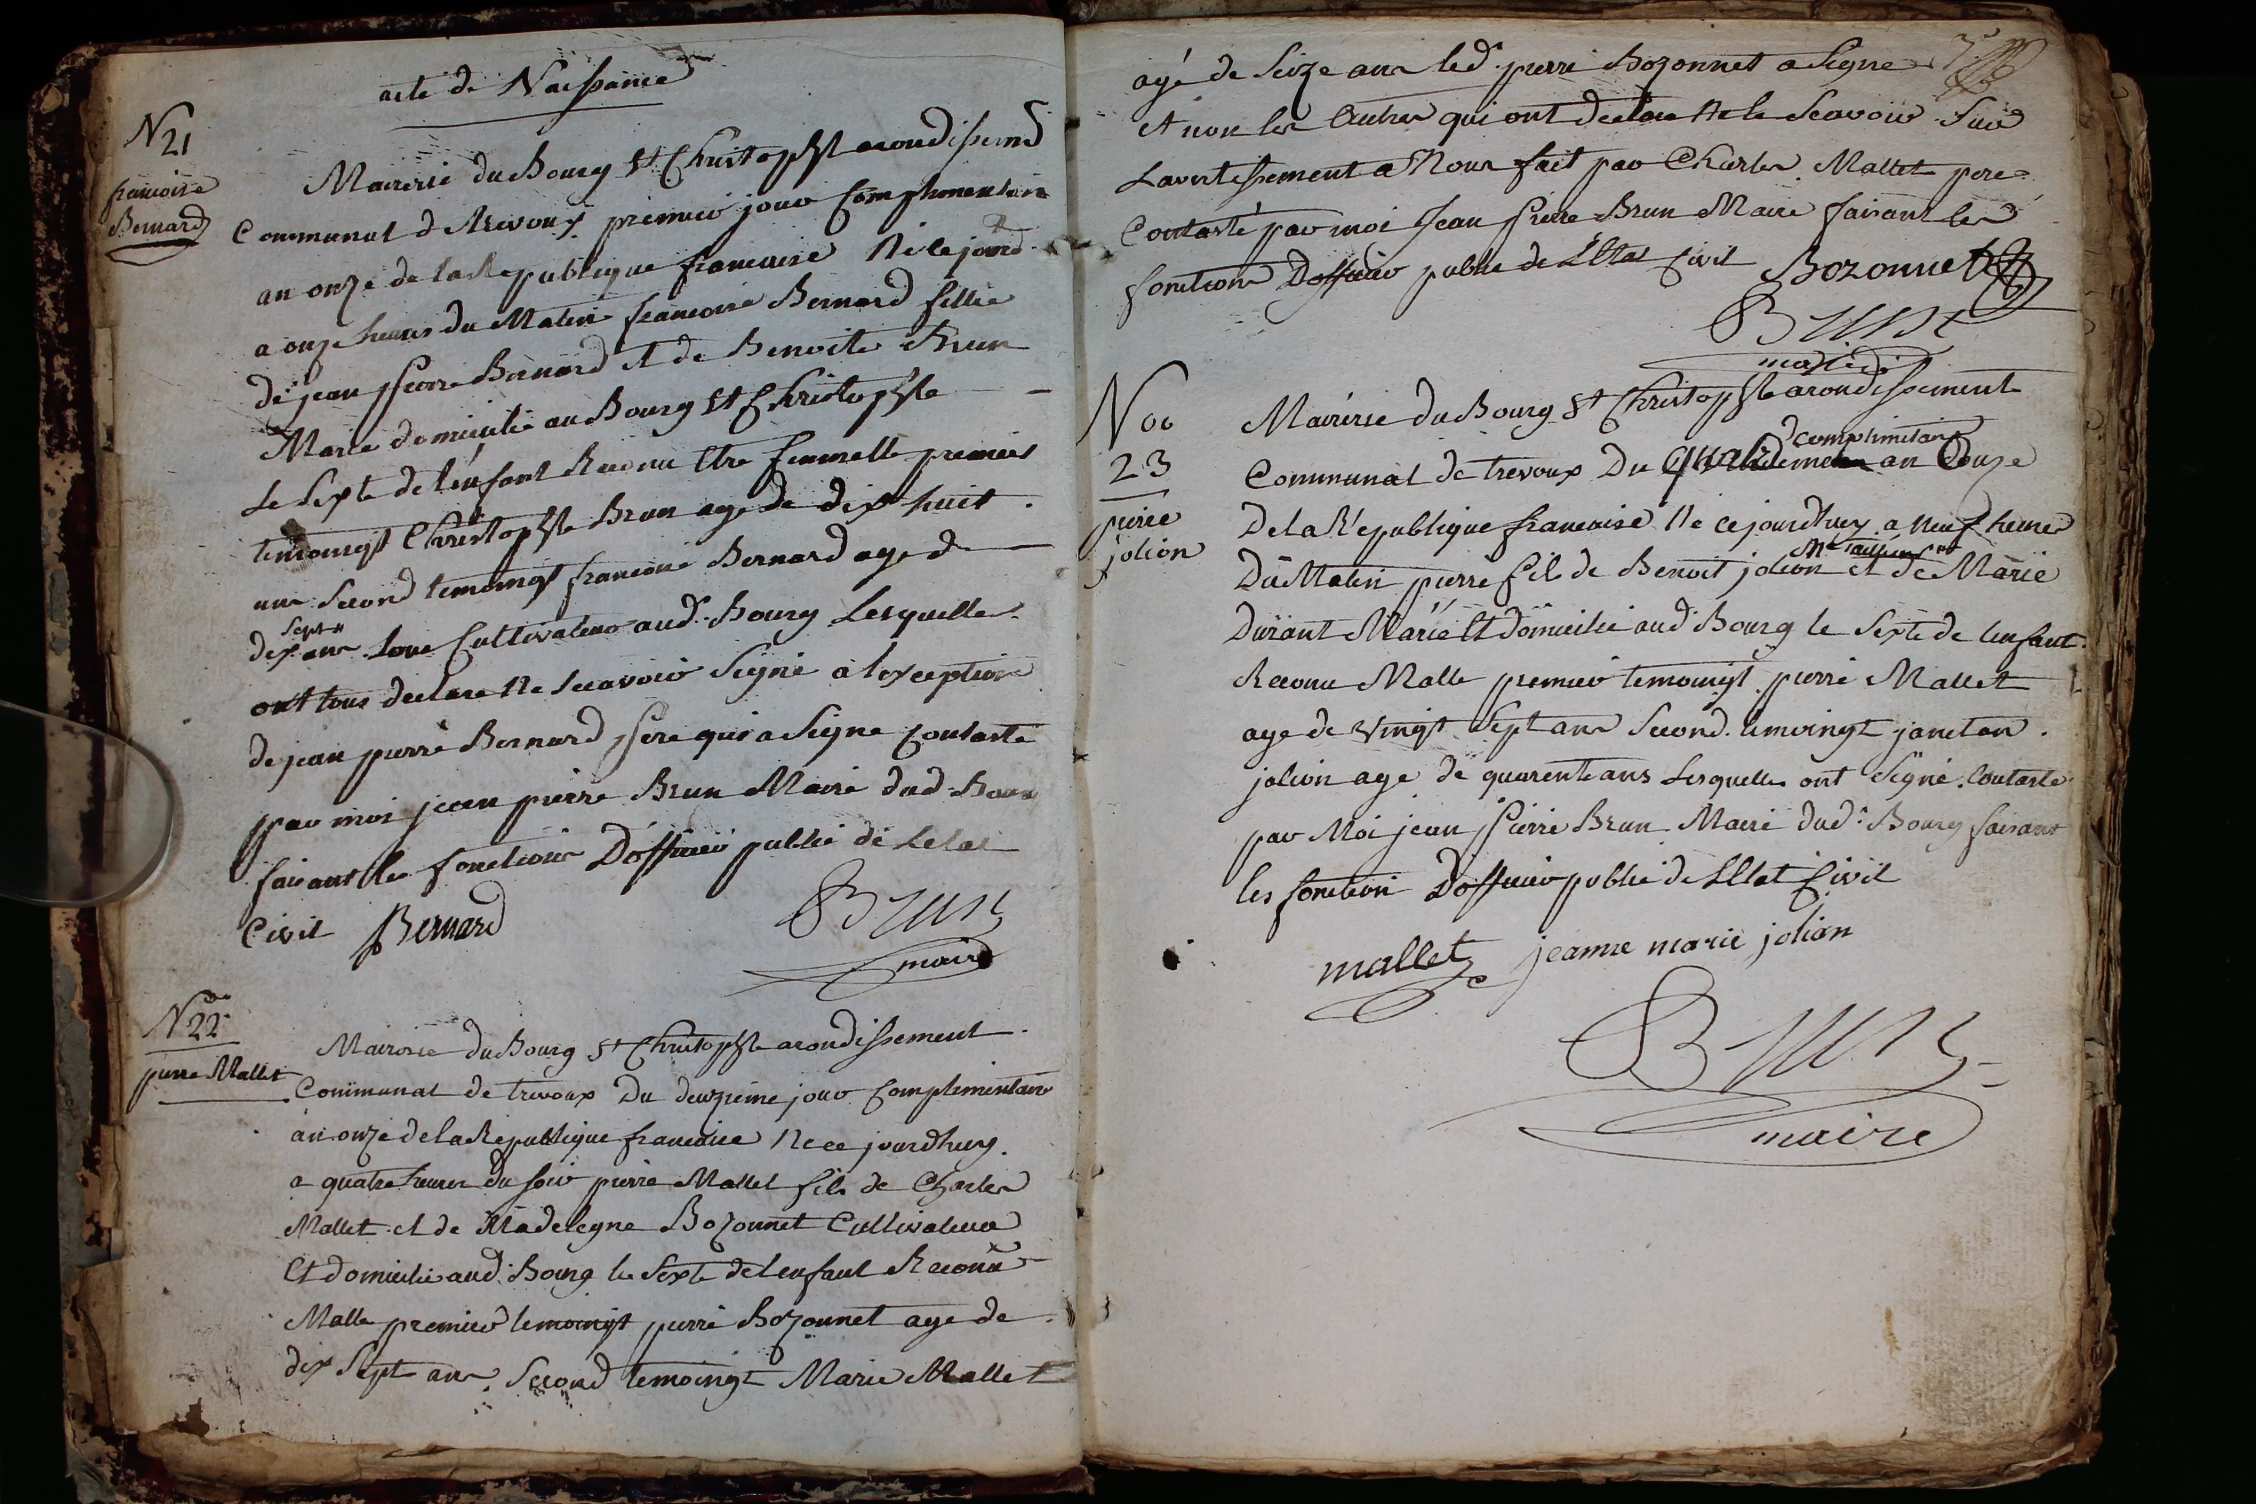 acte de Naissance
N 21
francoise
Bernard
Mairerie du Bourg St Christophle arondissemt
Communal d Trevoux premier jour Complimentaire
an onze de la Republique francaise Né ce jourd
a onze heures du Matin francoise Bernard fillie
de jean pierre Bernard et de Benoite Brun
Marie domicilié au Bourg St Christophle
Le Sexte de l'enfant Reconu Etre femmelle premier
temoingt Christophle Brun age de dix huit
ans Second temoingt francoise Bernard age de
Sept
dix ans tous Cultivateur aud. Bourg Lesquelle
ont tous declare Ne Scavoir Signé a l'exception
de jean pierre Bernard pere qui a Signe Contasté
par moi jean pierre Brun Maire dud Bourg
faisant les fonctions D'officier public de Letat
Civil Bernard
Brun
maire
N 22
pierre Mallet
Mairerie du Bourg St Christophle arondissement
Communal de trevoux Du deuxzieme jour Complimentaire
an onze de la Republique francaise Ne ce jourdhuy
a quatre heures du soir pierre Mallet fils de Charles
Mallet et de Madelegne Bozonnet Cultivateur
Et domicilié aud. Bourg le Sexte de l'enfant Reconu
Malle premier temoingt pierre Bozonnet age de
dix Sept ans Second temoingt Marie Mallet
agé de Seize ans led. pierre Bozonnet a Signe
et non les Autres qui ont declare Ne le Scavoir Sur
Lavertissement a Nous fait par Charles Mallet pere
Contasté par moi Jean Pierre Brun Maire faisant les
fonctions D'officier public de L'Etat Civil Bozonnet
Brun
maire
No
23
pierre
jolion
Mairerie du Bourg St Christophle arondissement
complimitaire
Communal de trevoux Du an Onze
De la Republique francaise Ne ce jourdhuy a neuf heures
Me Tailleur
Du Matin pierre fils de Benoit jolion et de Marie
Durant Marié Et domicilié aud Bourg le Sexte de lenfant
Reconu Malle premier temoingt pierre Mallet
age de Vingt Sept ans Second temoingt janeton
jolion age de quarente ans Lesquelles ont Signé Contasté
par Moi jean Pierre Brun Maire dud. Bourg faisant
les fonction D'officier public de L'Etat Civil
mallet jeanne marie jolion
Brun
maire